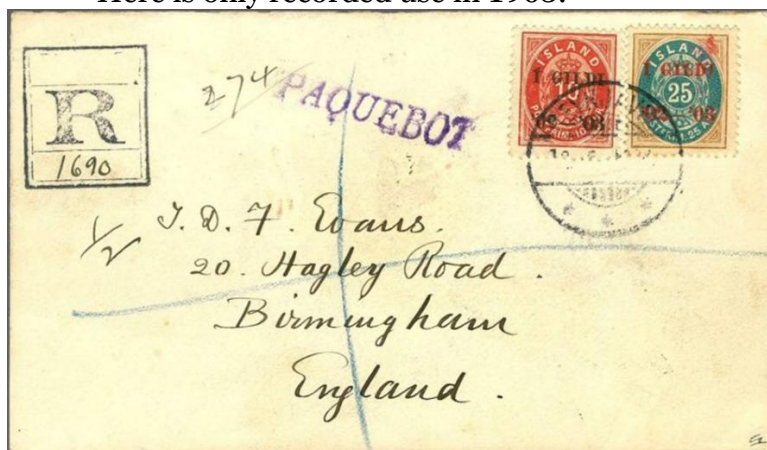 Here is only recorded use in
R
1690
274
PAQUEBOT
ISLAND
Í GILDI
10
ISLAND
Í GILDI
25
1/2
J. D. F. Evans.
20. Hagley Road.
Birmingham
England.